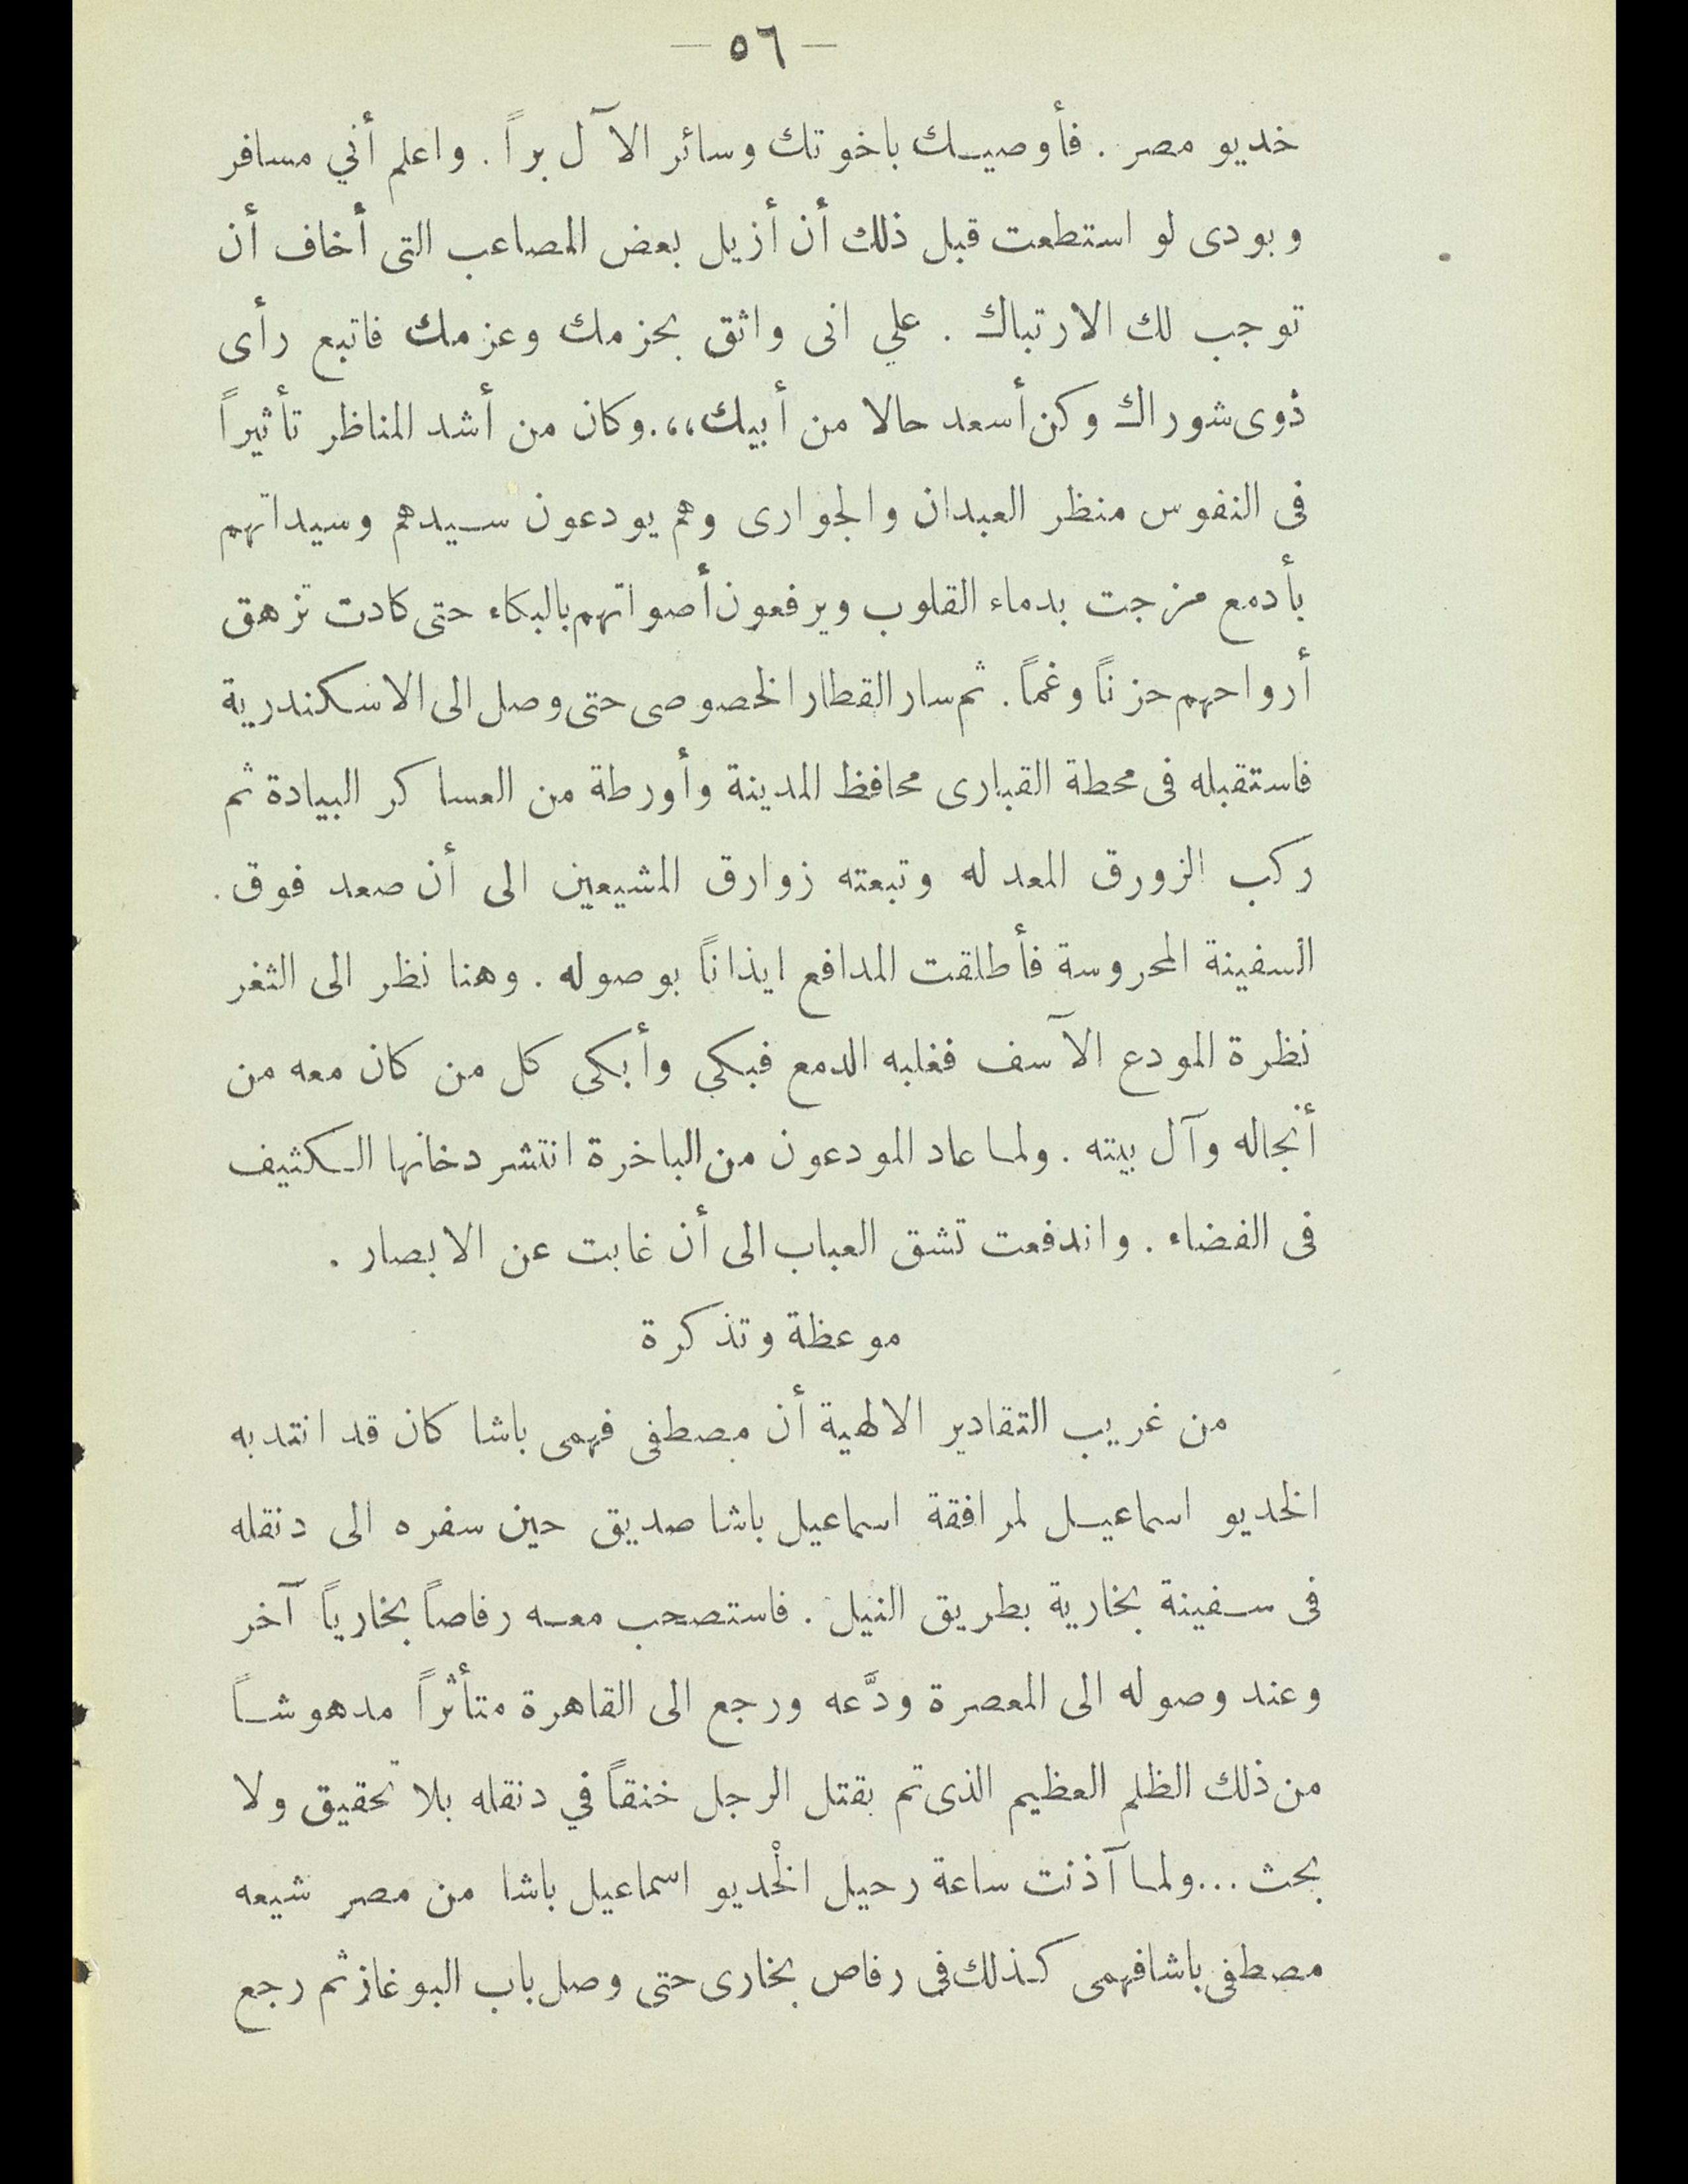 — ٥٦ —
خديو مصر . فأوصيك باخوتك وسائر الآل براً . واعلم أني مسافر
وبودى لو استطعت قبل ذلك أن أزيل بعض المصاعب التى أخاف أن
توجب لك الارتباك . علي انى واثق بحزمك وعزمك فاتبع رأى
ذوى شوراك وكن أسعد حالا من أبيك،، . وكان من أشد المناظر تأثيراً
فى النفوس منظر العبدان والجوارى وهم يودعون سيدهم وسيداتهم
بأدمع مزجت بدماء القلوب ويرفعون أصواتهم بالبكاء حتى كادت تزهق
أرواحهم حزناً وغماً . ثم سار القطار الخصوصى حتى وصل الى الاسكندرية
فاستقبله فى محطة القبارى محافظ المدينة وأورطة من العساكر البيادة ثم
ركب الزورق المعد له وتبعته زوارق المشيعين الى أن صعد فوق .
السفينة المحروسة فأطلقت المدافع ايذاناً بوصوله . وهنا نظر الى الثغر
نظرة المودع الآسف فغلبه الدمع فبكى وأبكى كل من كان معه من
أنجاله وآل بيته . ولما عاد المودعون من الباخرة انتشر دخانها الكثيف
فى الفضاء . واندفعت تشق العباب الى أن غابت عن الابصار .
موعظة وتذكرة
من غريب التقادير الالهية أن مصطفى فهمى باشا كان قد انتدبه
الخديو اسماعيل لمرافقة اسماعيل باشا صديق حين سفره الى دنقله
فى سفينة بخارية بطريق النيل . فاستصحب معه رفاصاً بخارياً آخر
وعند وصوله الى المعصرة ودَّعه ورجع الى القاهرة متأثراً مدهوشاً
من ذلك الظلم العظيم الذى تم بقتل الرجل خنقاً في دنقله بلا تحقيق ولا
بحث ... ولما آذنت ساعة رحيل الخْديو اسماعيل باشا من مصر شيعه
مصطفى باشا فهمى كذلك فى رفاص بخارى حتى وصل باب البوغاز ثم رجع